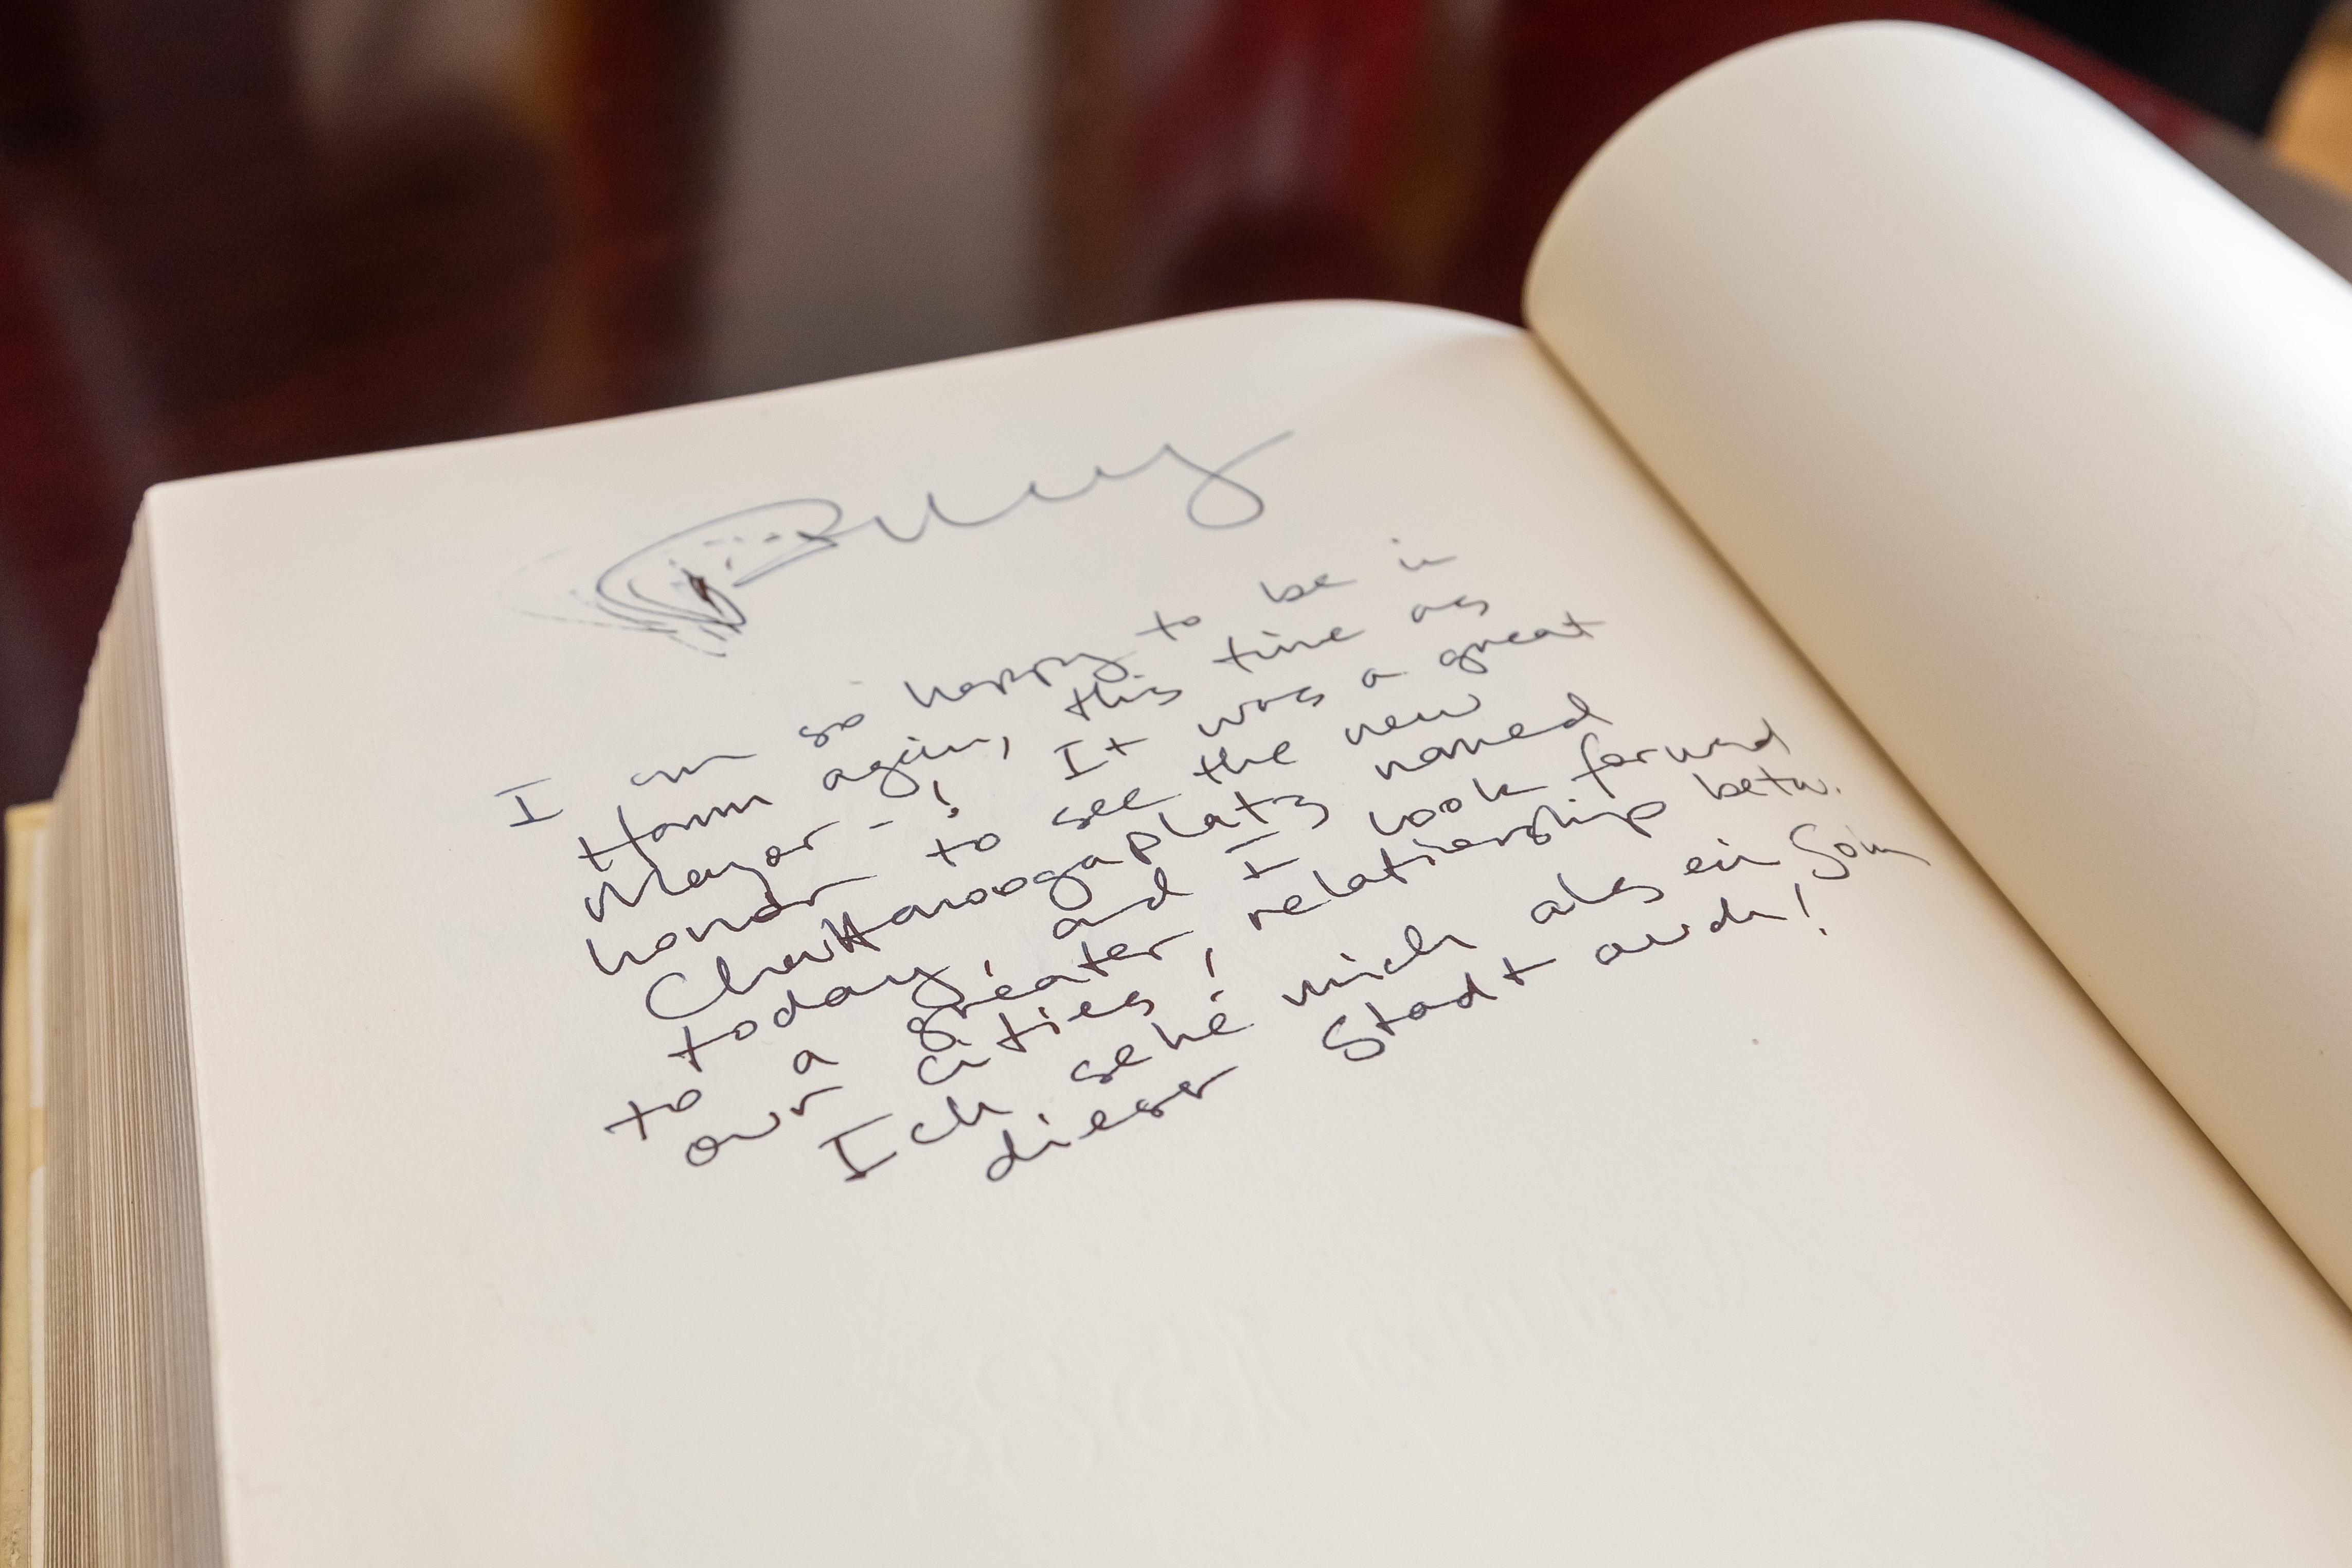 I am so happy to be in
Hamm again, this time as
Mayor - ! It was a great
honor to see the new
Chattanoogaplatz named
today, and I look forward
to a greater, relationship betw.
our cities!
Ich sehe mich als ein Sohn
dieser Stadt auch!